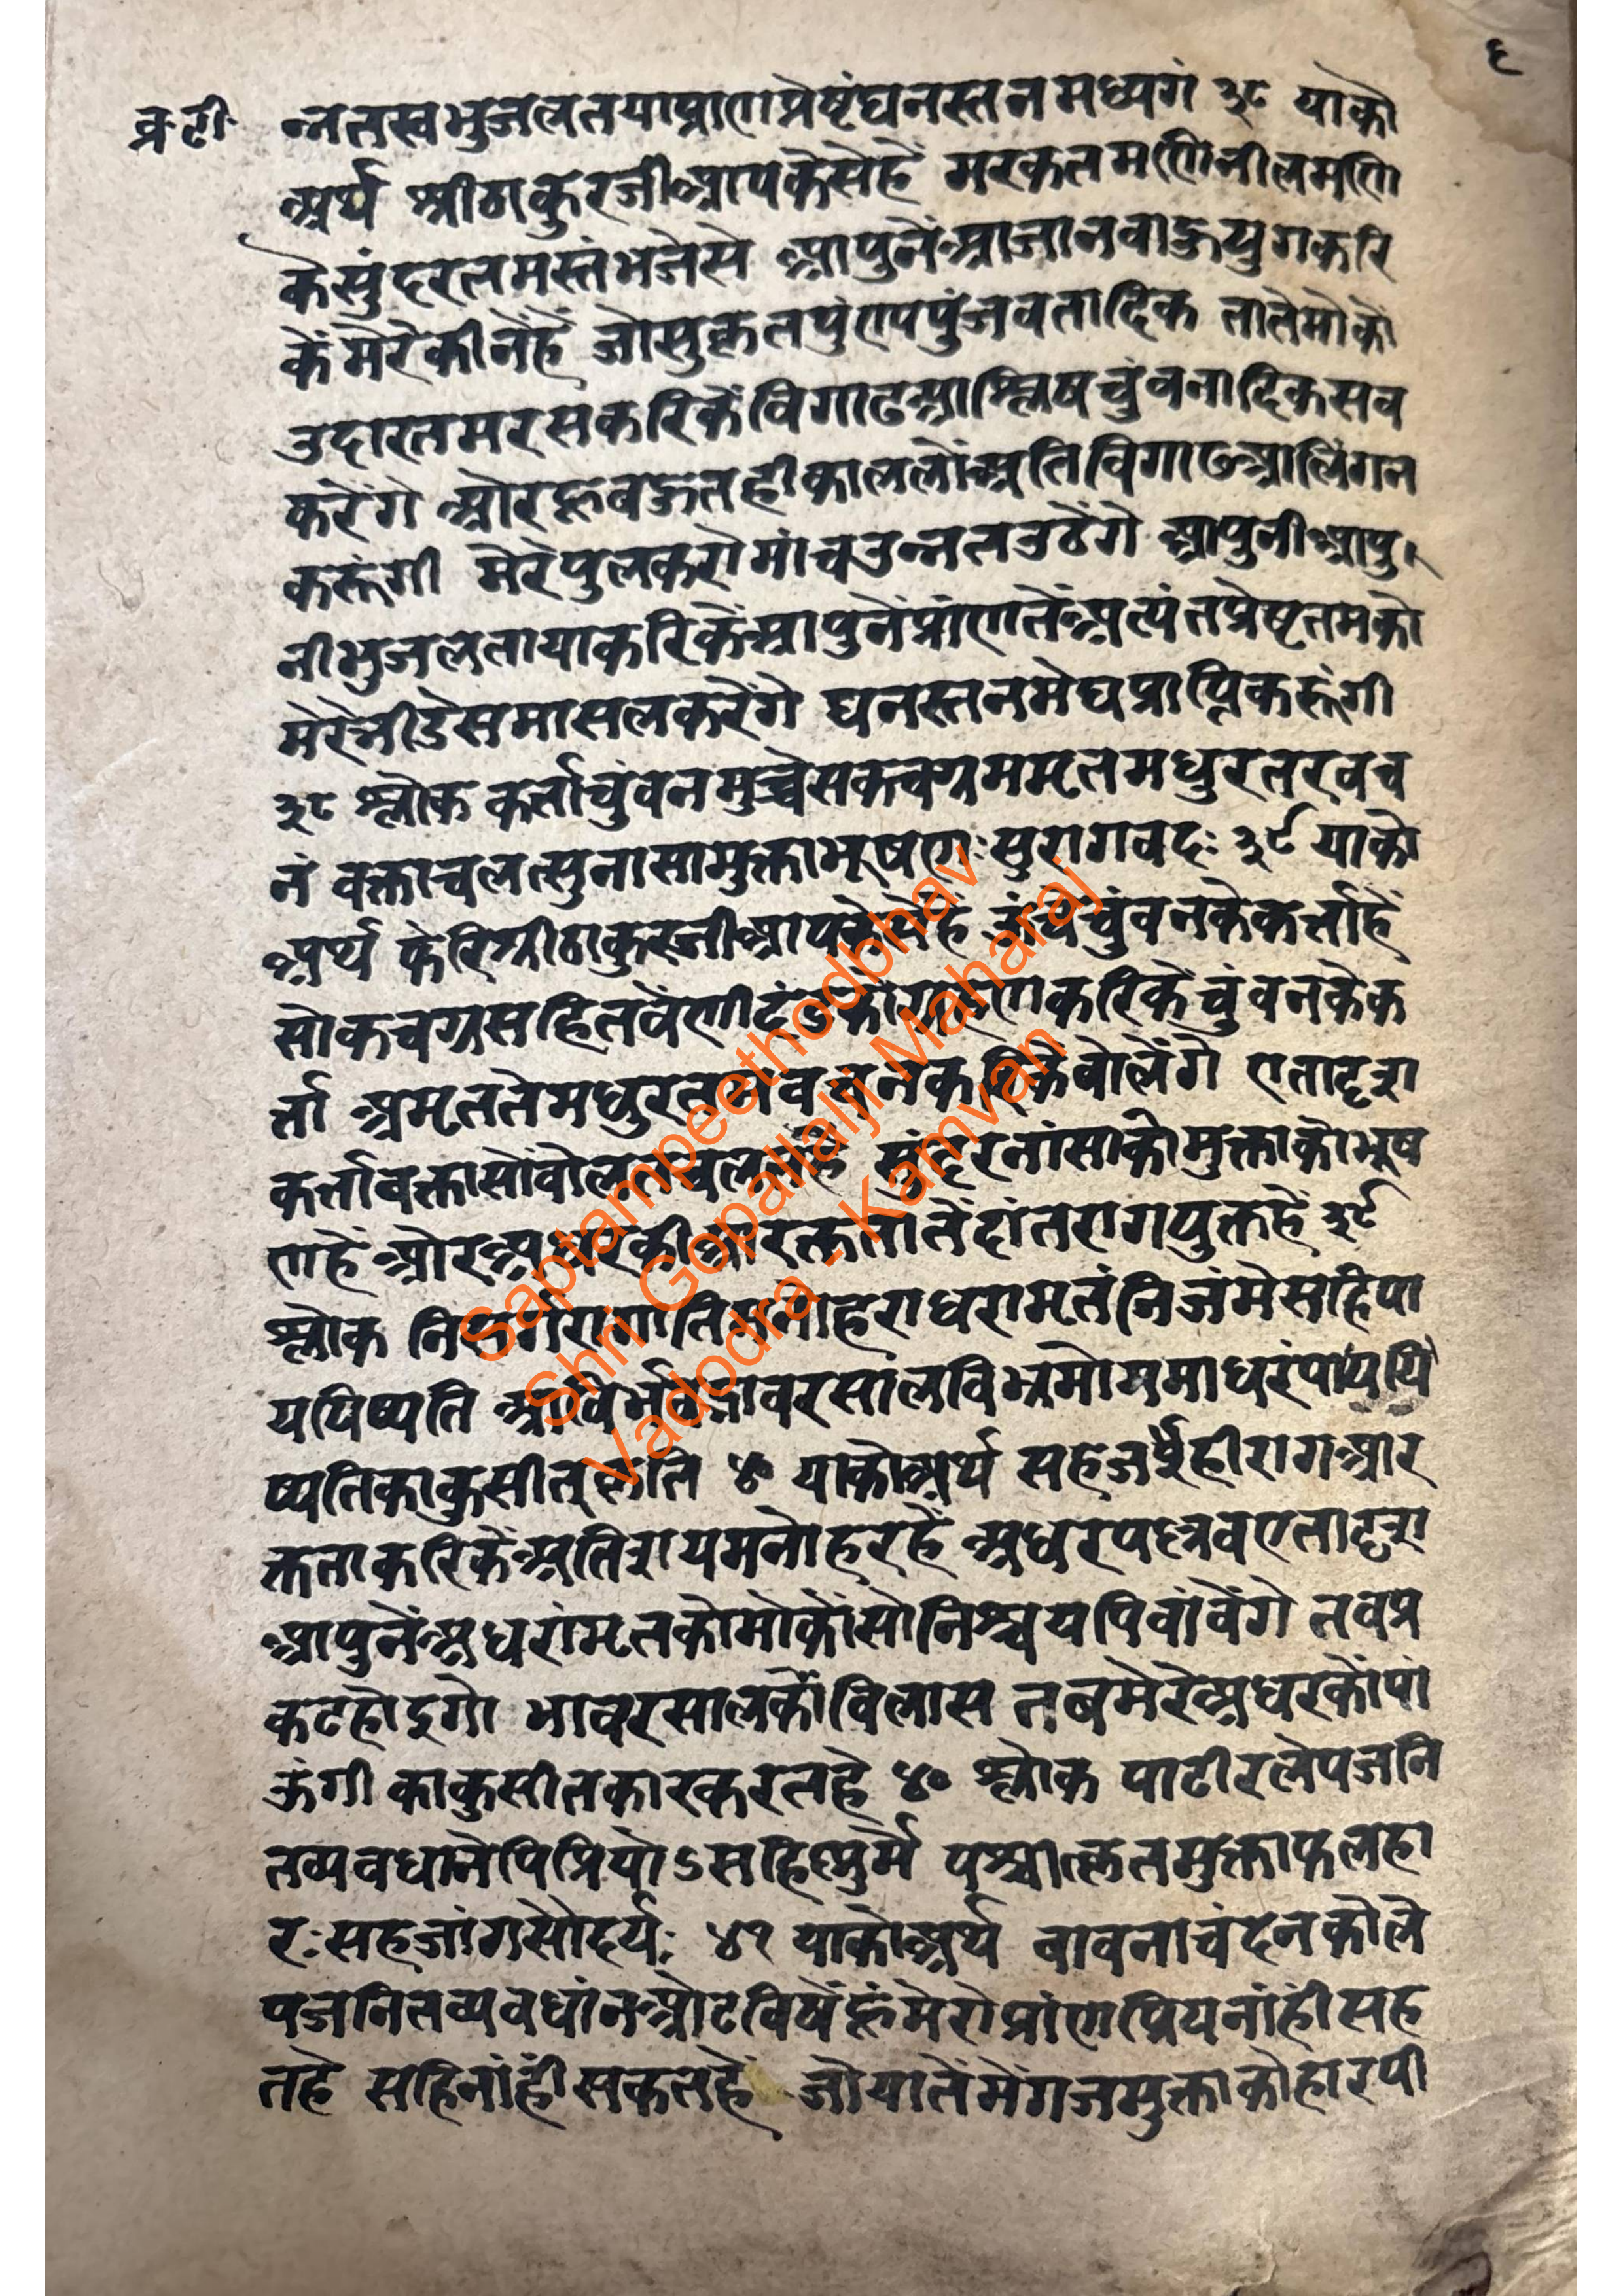 ६
व्र.टी.
न्नतस्वभुजलतयाप्राणप्रेष्टंघनस्तनमध्यगं ३८ याको
अर्थ श्रीठाकुरजीआपकैसेहें मरकतमणिनीलमणि
कैसुंदरतमस्तंभजेसे आपुनेंआजानबाहुयुगकरि
कें मेरेकीनेंहें जोसुकृतपुंएयपुंजव्रतादिक तातेमोकों
उदारतमरसकरिकेंविगाढआश्लिषचुंवनादिकसव
करेंगे औरहूबहुतहीकाललोंअतिविगाढआलिंगन
करूंगी मेरेपुलकरोमांचउन्नतउठेंगे आपुनीआपु
नीभुजलतायाकरिकेंआपुनेंप्रांणतेंअत्यंतप्रेष्टतमको
मेरेनीडेसमासलकरेंगे घनस्तनमेघप्राप्तिकरूंगी
३८ श्लोक कर्त्ताचुंवनमुच्चैसकचग्रममृतमधुरतरवच
नं वक्ताचलत्सुनासामुक्ताभूषणःसुरागवदः ३९ याको
अर्थ फेरिश्रीठाकुरजीआप हें ऊंचेचुंवनकेकर्त्ताहें
सोकचग्रसहितवेंणीदंडकोंग्रहणकरिकेंचुंवनकेक
र्त्ता अमृततेमधुरतमवचनकरिकेंवोलेंगे एतादृश
कर्त्तावक्तासोंवोलतचलतहें सुंदरनांसाकोमुक्ताकोभूष
णहें औरअधरकीआरक्ततातेंदांतरागयुक्तहें ३९
श्लोक निसर्गरागातिमनोहराधरामृतंनिजंमेसहिपा
ययिष्यति आविर्भवद्भावरसालविभ्रमोममाधरंपाययि
ष्यतिकाकुसीत्कृति ४० याकोअर्थ सहजहीरागआर
क्तताकरिकेंअतिशयमनोहरहें अधरपल्लवएतादृश
आपुनेंअधरांमृतकोमोकोंसोनिश्चयपिवांवेंगे तवप्र
कटहोइगो भावरसालकोंविलास तबमेरेअधरकोंपां
ऊंगी काकुसीतकारकरतहे ४० श्लोक पाटीरलेपजनि
तव्यवधानेपिप्रियोऽसहिष्णुर्मे पश्चात्कृतमुक्ताफलहा
रःसहजांगसौंदर्यः ४१ याकोअर्थ वावनाचंदनकोले
पजनितव्यवधांनओटविषेंहूंमेरोप्रांणप्रियनांहींसह
तहे सहिनांहींसकतहें जोयातेंमेंगजमुक्ताकोहारपी
Saptampeethodbhav
Shri Gopallalji Maharaj
Vadodra - Kamvan